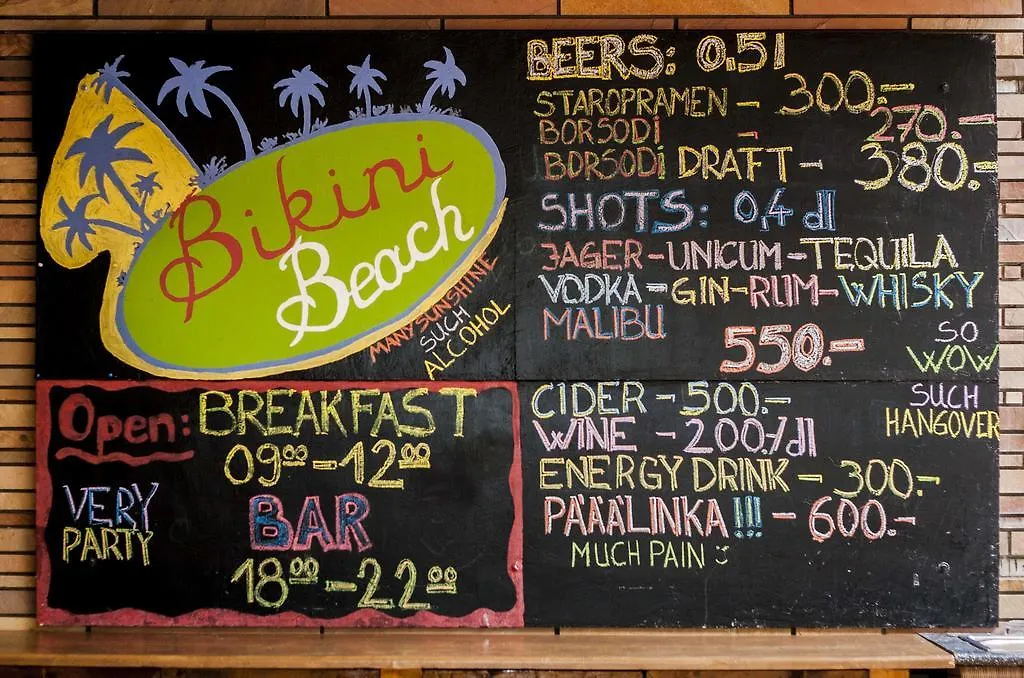 Bikini
Beach
MANY SUNSHINE
SUCH
ALCOHOL
Open: BREAKFAST
09⁰⁰-12⁰⁰
VERY
PARTY
BAR
18⁰⁰-22⁰⁰
BEERS: 0.5l
STAROPRAMEN - 300.-
BORSODi - 270.-
BORSODi DRAFT - 380.-
SHOTS: 0,4 dl
JAGER-UNICUM-TEQUILA
VODKA-GIN-RUM-WHISKY
MALIBU
550.-
SO
WOW
SUCH
HANGOVER
CIDER - 500.-
WINE - 200./dl
ENERGY DRINK - 300.-
PÄÄÄLINKA!!! - 600.-
MUCH PAIN :)